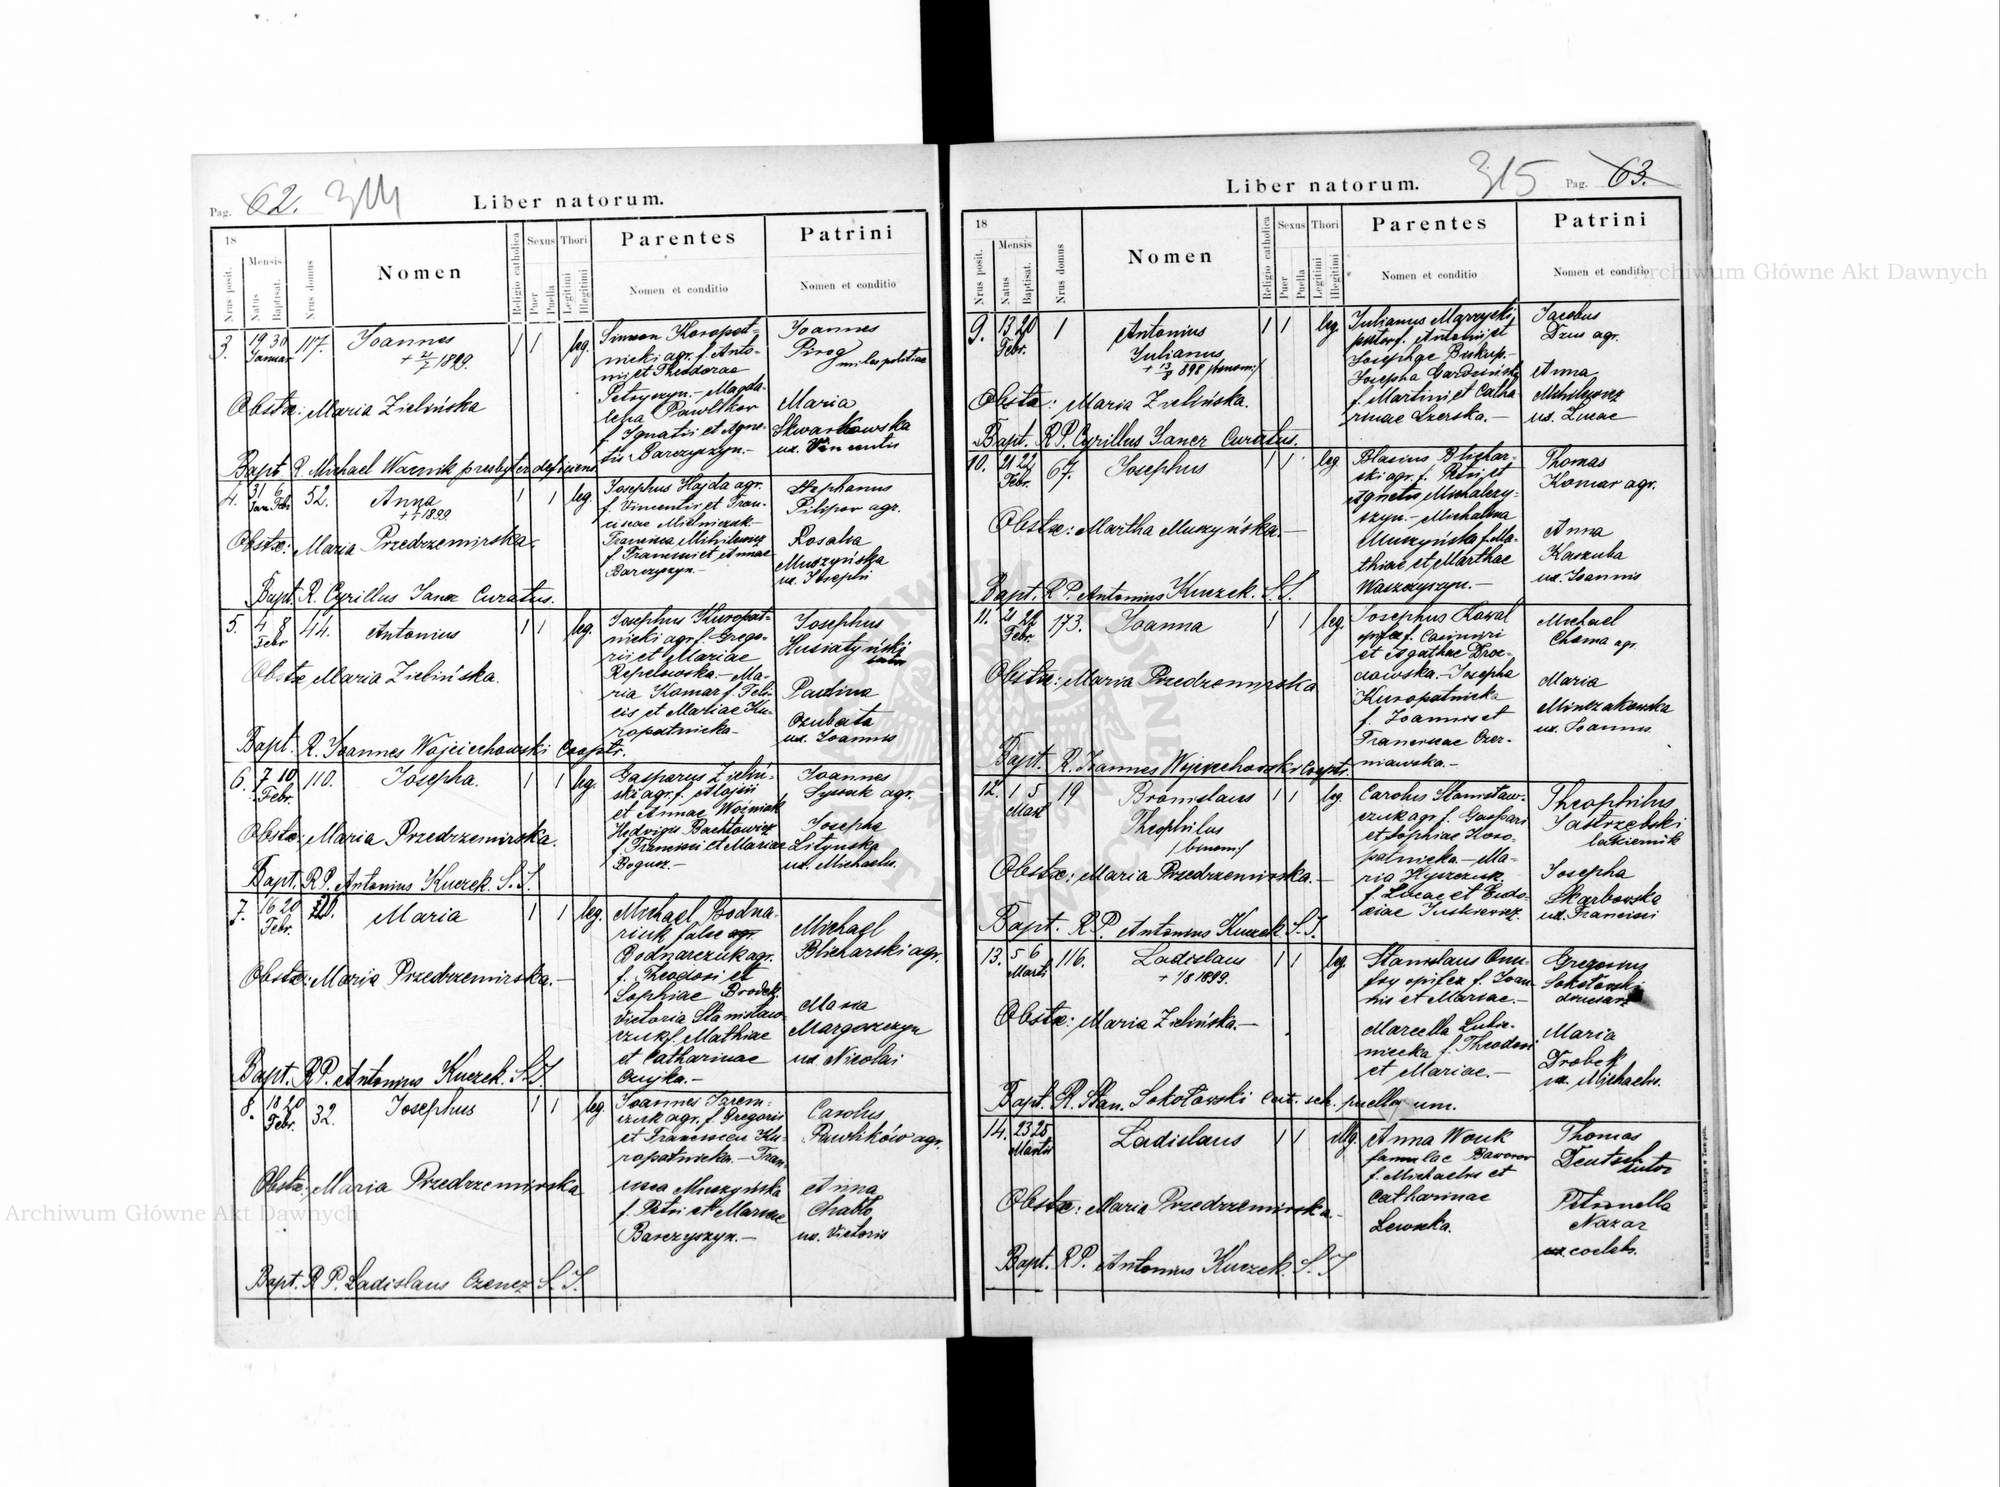 Archiwum Główne Akt Dawnych
Pag. 62. 314
Liber natorum.
18
Nrus posit.
Mensis
Natus
Baptisat.
Nrus domus
Nomen
Religio catholica
Sexus
Puer
Puella
Thori
Legitimi
Illegitimi
Parentes
Nomen et conditio
Patrini
Nomen et conditio
3. 19 30 Januar 117. Joannes 1 1 leg.
1899.
Simeon Koropat-
nicki agr. f. Anto-
nii et Theodorae
Petryszyn. - Magda-
lena Pawlikow
f. Ignatii et Agne-
tis Barczyszyn. -
Joannes
Pirog
Maria
Skwarkowska
ux. Vincentii
Obstx: Maria Zielińska
Bapt. R. Michael Warnik presbyter deficiens
4. 31 Jan. 6 Febr 52. Anna 1 1 leg.
1899.
Josephus Hayda agr.
f. Vincentii et Fran-
ciscae Mielniczuk -
Francisca Mihilewicz
f. Francisci et Annae
Barczyszyn. -
Stephanus
Pilipow agr.
Rosalia
Muszyńska
ux. Josephi
Obstx: Maria Przedrzemirska.
Bapt. R. Cyrillus Janer Curatus.
5. 4 8 Febr 44. Antonius 1 1 leg.
Josephus Kuropat-
nicki agr. f. Grego-
rii et Mariae
Repelowska. - Ma-
ria Komar f. Feli-
cis et Mariae Ku-
ropatnicka -
Josephus
Husiatyński
Paulina
Czubata
ux. Joannis
Obstx Maria Zielińska.
Bapt. R. Joannes Wojciechowski Cooptr.
6. 7 10 Febr. 110. Josepha. 1 1 leg.
Gasparus Zieliń-
ski agr. f. Aloysii
et Annae Woźniak
Hedvigis Bachtowicz
f. Francisci et Mariae
Bogucz. -
Joannes
Lysyuk agr.
Josepha
Litynska
ux. Michaelis.
Obstx: Maria Przedrzemirska.
Bapt. RP. Antonius Kuczek S.J.
7. 16 20 Febr. 120. Maria 1 1 leg.
Michael Bodna-
riuk false agr.
Bodnarczuk agr.
f. Theodosi et
Sophiae Brodek.
Victoria Stanisław-
czuk f. Mathiae
et Catharinae
Michael
Blicharski agr.
Maria
Margorczyn
ux. Nicolai
Obstx: Maria Przedrzemirska. -
Bapt. RP. Antonius Kuczek. S.J.
8. 18 20 Febr. 32. Josephus 1 1 leg.
Joannes Jarem-
czuk agr. f. Gregorii
et Franciscae Ku-
ropatnicka. - Fran-
cisca Muszyńska
f. Petri et Mariae
Barczyszyn. -
Carolus
Pawlików agr.
Anna
Chabło
ux. Victoris
Obstx: Maria Przedrzemirska
Bapt. R P. Ladislaus Czencz S.J.
Liber natorum.
315 Pag. 63.
18
Nrus posit.
Mensis
Natus
Baptisat.
Nrus domus
Nomen
Religio catholica
Sexus
Puer
Puella
Thori
Legitimi
Illegitimi
Parentes
Nomen et conditio
Patrini
Nomen et conditio
Archiwum Główne Akt Dawnych
9. 13 20 Febr. 1 Antonius 1 1 leg.
Julianus
898 /binom:/
Julianus Marzycki
Antonii et
Josephae Biskup. -
Josepha
f. Martini et Catha
rinae
Jacobus
Dzus agr.
Anna
Mihilewicz
ux. Lucae
Obstx: Maria Zielińska.
Bapt. RP. Cyrillus Janer Curatus.
10. 21 22 Febr. 67. Josephus 1 1 leg.
Blasius Blichar-
ski agr. f. Petri et
Agnetis Michalczy-
szyn. - Michalina
Muszyńska f. Ma-
thiae et Marthae
Waszczyszyn. -
Thomas
Komar agr.
Anna
Kaszuba
ux. Joannis
Obstx: Martha Muszyńska. -
Bapt. RP. Antonius Kuczek. S.J.
11. 21 22 Febr. 173. Joanna 1 1 leg.
Josephus Kowal
opifex f. Casimiri
et Agathae Droz-
dowska. - Josepha
Kuropatnicka
f. Joannis et
Franciscae Czer-
niawska. -
Michael
Choma agr.
Maria
Minczakowska
ux. Joannis
Obstx: Maria Przedrzemirska
Bapt. R. Joannes Wojciechowski Cooptr.
12. 1 5 Mart 19 Bronislaus 1 1 leg.
Theophilus
/binom:/
Carolus Stanisław-
czuk agr. f. Gaspari
et Sophiae Koro-
patnicka. - Ma-
ria Hyszczuk
f. Lucae et Eudo-
xiae Juskiewicz.
Theophilus
Jastrzebski
lakiernik
Josepha
Skarbowska
ux. Francisci
Obstx: Maria Przedrzemirska. -
Bapt. RP. Antonius Kuczek S.J.
13. 5 6 Marti 116. Ladislaus 1 1 leg.
+ 1/8 1899.
Stanislaus Onu-
fry opifex f. Joan-
nis et Mariae. -
Marcella Lubie-
niecka f. Theodosi
et Mariae. -
Gregorius
Sokołowski
Maria
Drobek
ux. Michaelis.
Obstx: Maria Zielińska. -
Bapt. R. Stan. Sokołowski Cat. sch. puellarum.
14. 23 25 Martii Ladislaus 1 1 illeg.
Anna Wonk
famulae Baworow
f. Michaelis et
Catharinae
Lewicka.
Thomas
Deutsch
sutor
Petronella
Nazar
coelebs.
Obstx: Maria Przedrzemirska. -
Bapt. RP. Antonius Kuczek. S.J.
Archiwum Główne Akt Dawnych